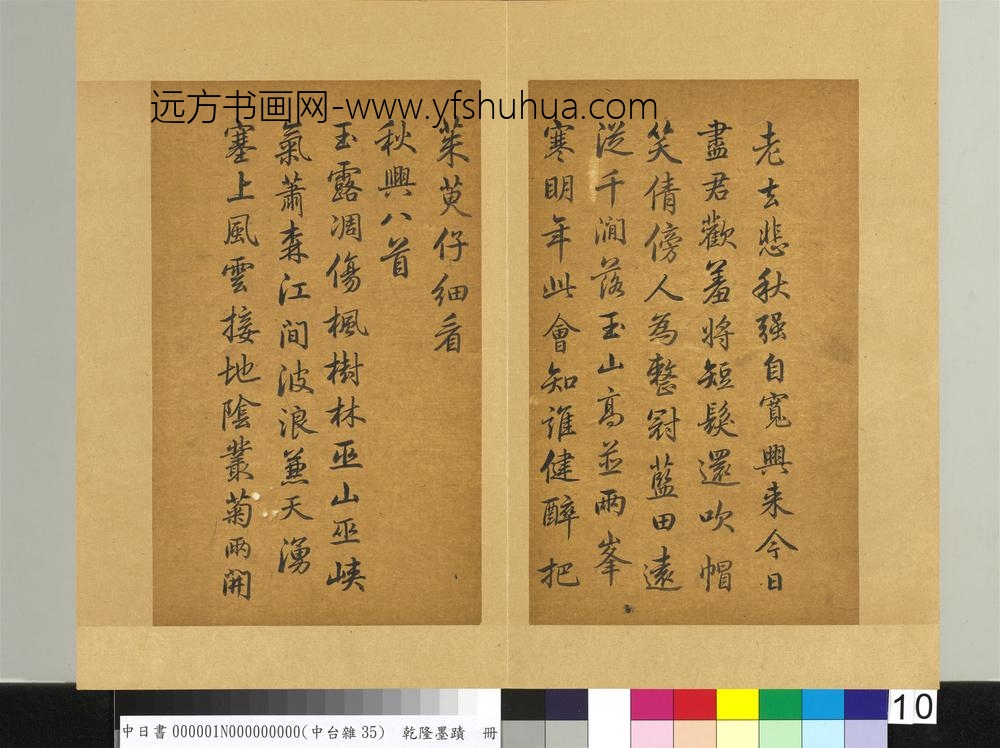 远方书画网-www.yfshuhua.com
老去悲秋强自寬興来今日
盡君歡羞將短髮還吹帽
笑倩傍人為整冠藍田遠
從千澗落玉山高並兩峯
寒明年此會知誰健醉把
茱萸仔細看
秋興八首
玉露凋傷楓樹林巫山巫峡
氣蕭森江間波浪兼天湧
塞上風雲接地陰叢菊兩開
10
中日書 000001N000000000(中台雜 35) 乾隆墨蹟 冊